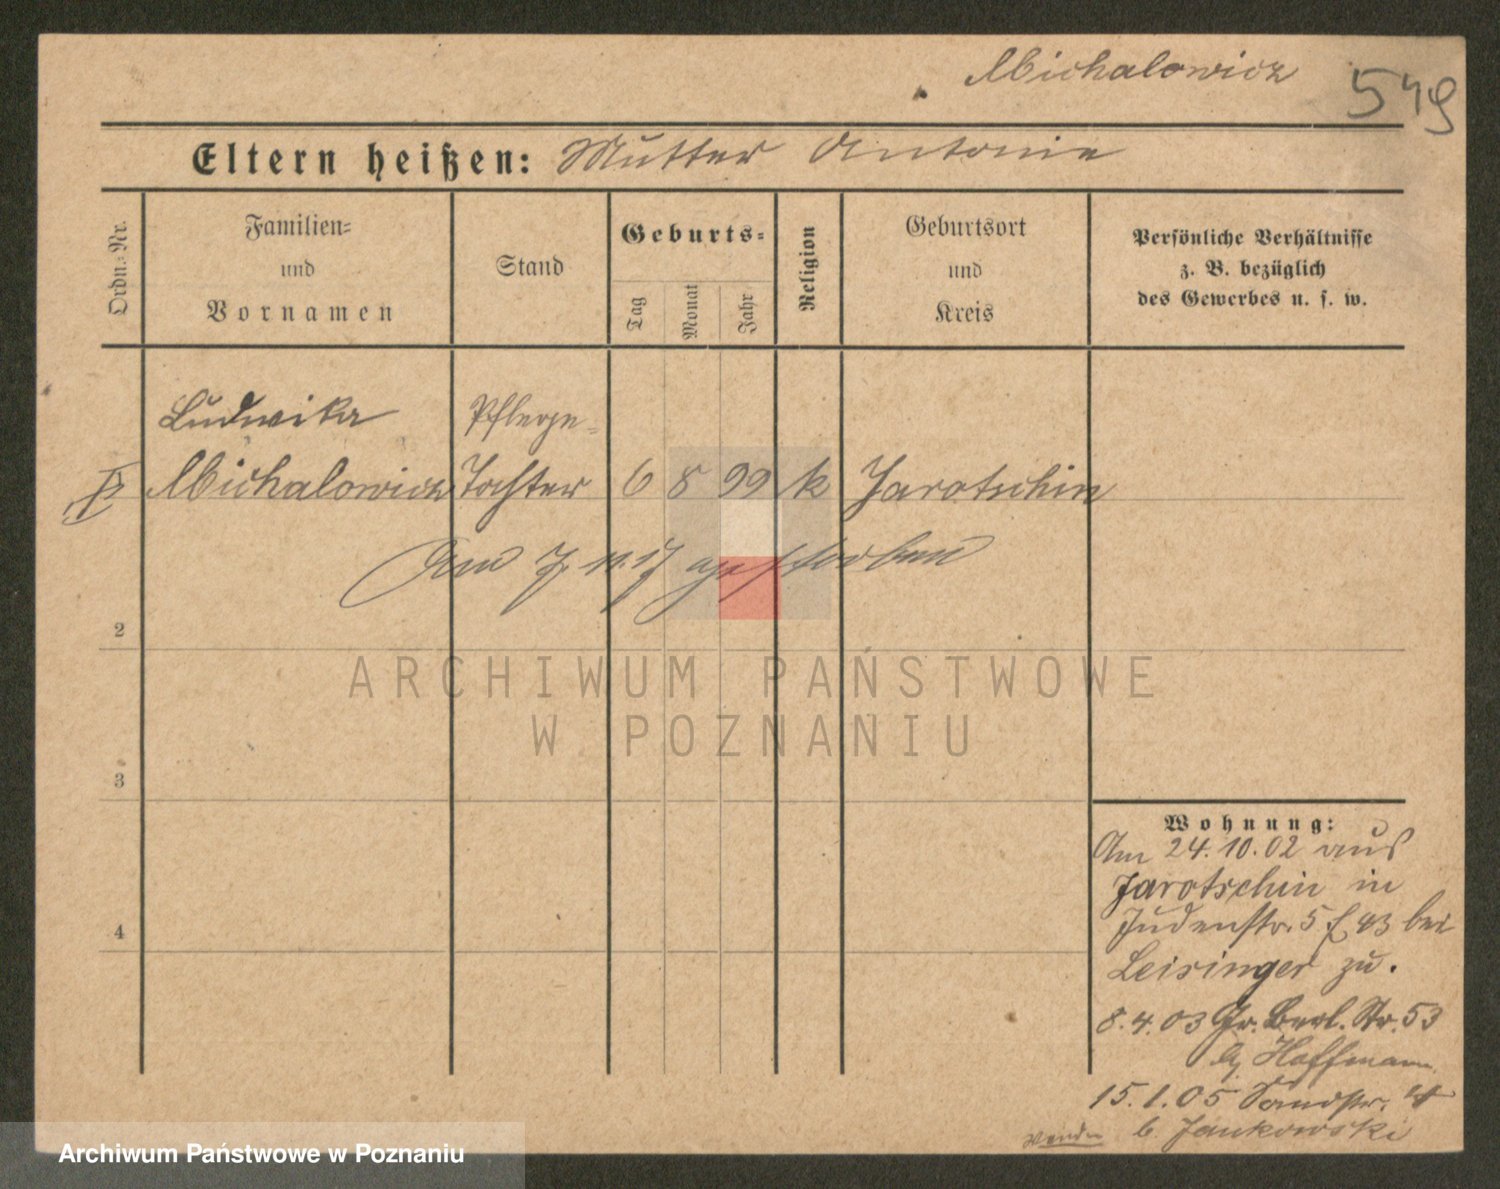 Michalowicz
549
Eltern heißen: Mutter Antonie
Ordn.-Nr.
Familien-
und
Vornamen
Stand
Geburts-
Tag
Monat
Jahr
Religion
Geburtsort
und
Kreis
Persönliche Verhältnisse
z. B. bezüglich
des Gewerbes u. s. w.
Ludwika Pflege-
Michalowicz Tochter 6 8 99 k Jarotschin
Am 7.11.17 gestorben
2
3
4
Wohnung:
Am 24.10.02 aus
Jarotschin in
Judenstr. 5 bei
Leisinger zu.
8.4.03 Gr. Berl. Str. 53
Hoffmann
15.1.05 Sandstr.
b. Jankowski
wenden
ARCHIWUM PAŃSTWOWE
W POZNANIU
Archiwum Państwowe w Poznaniu